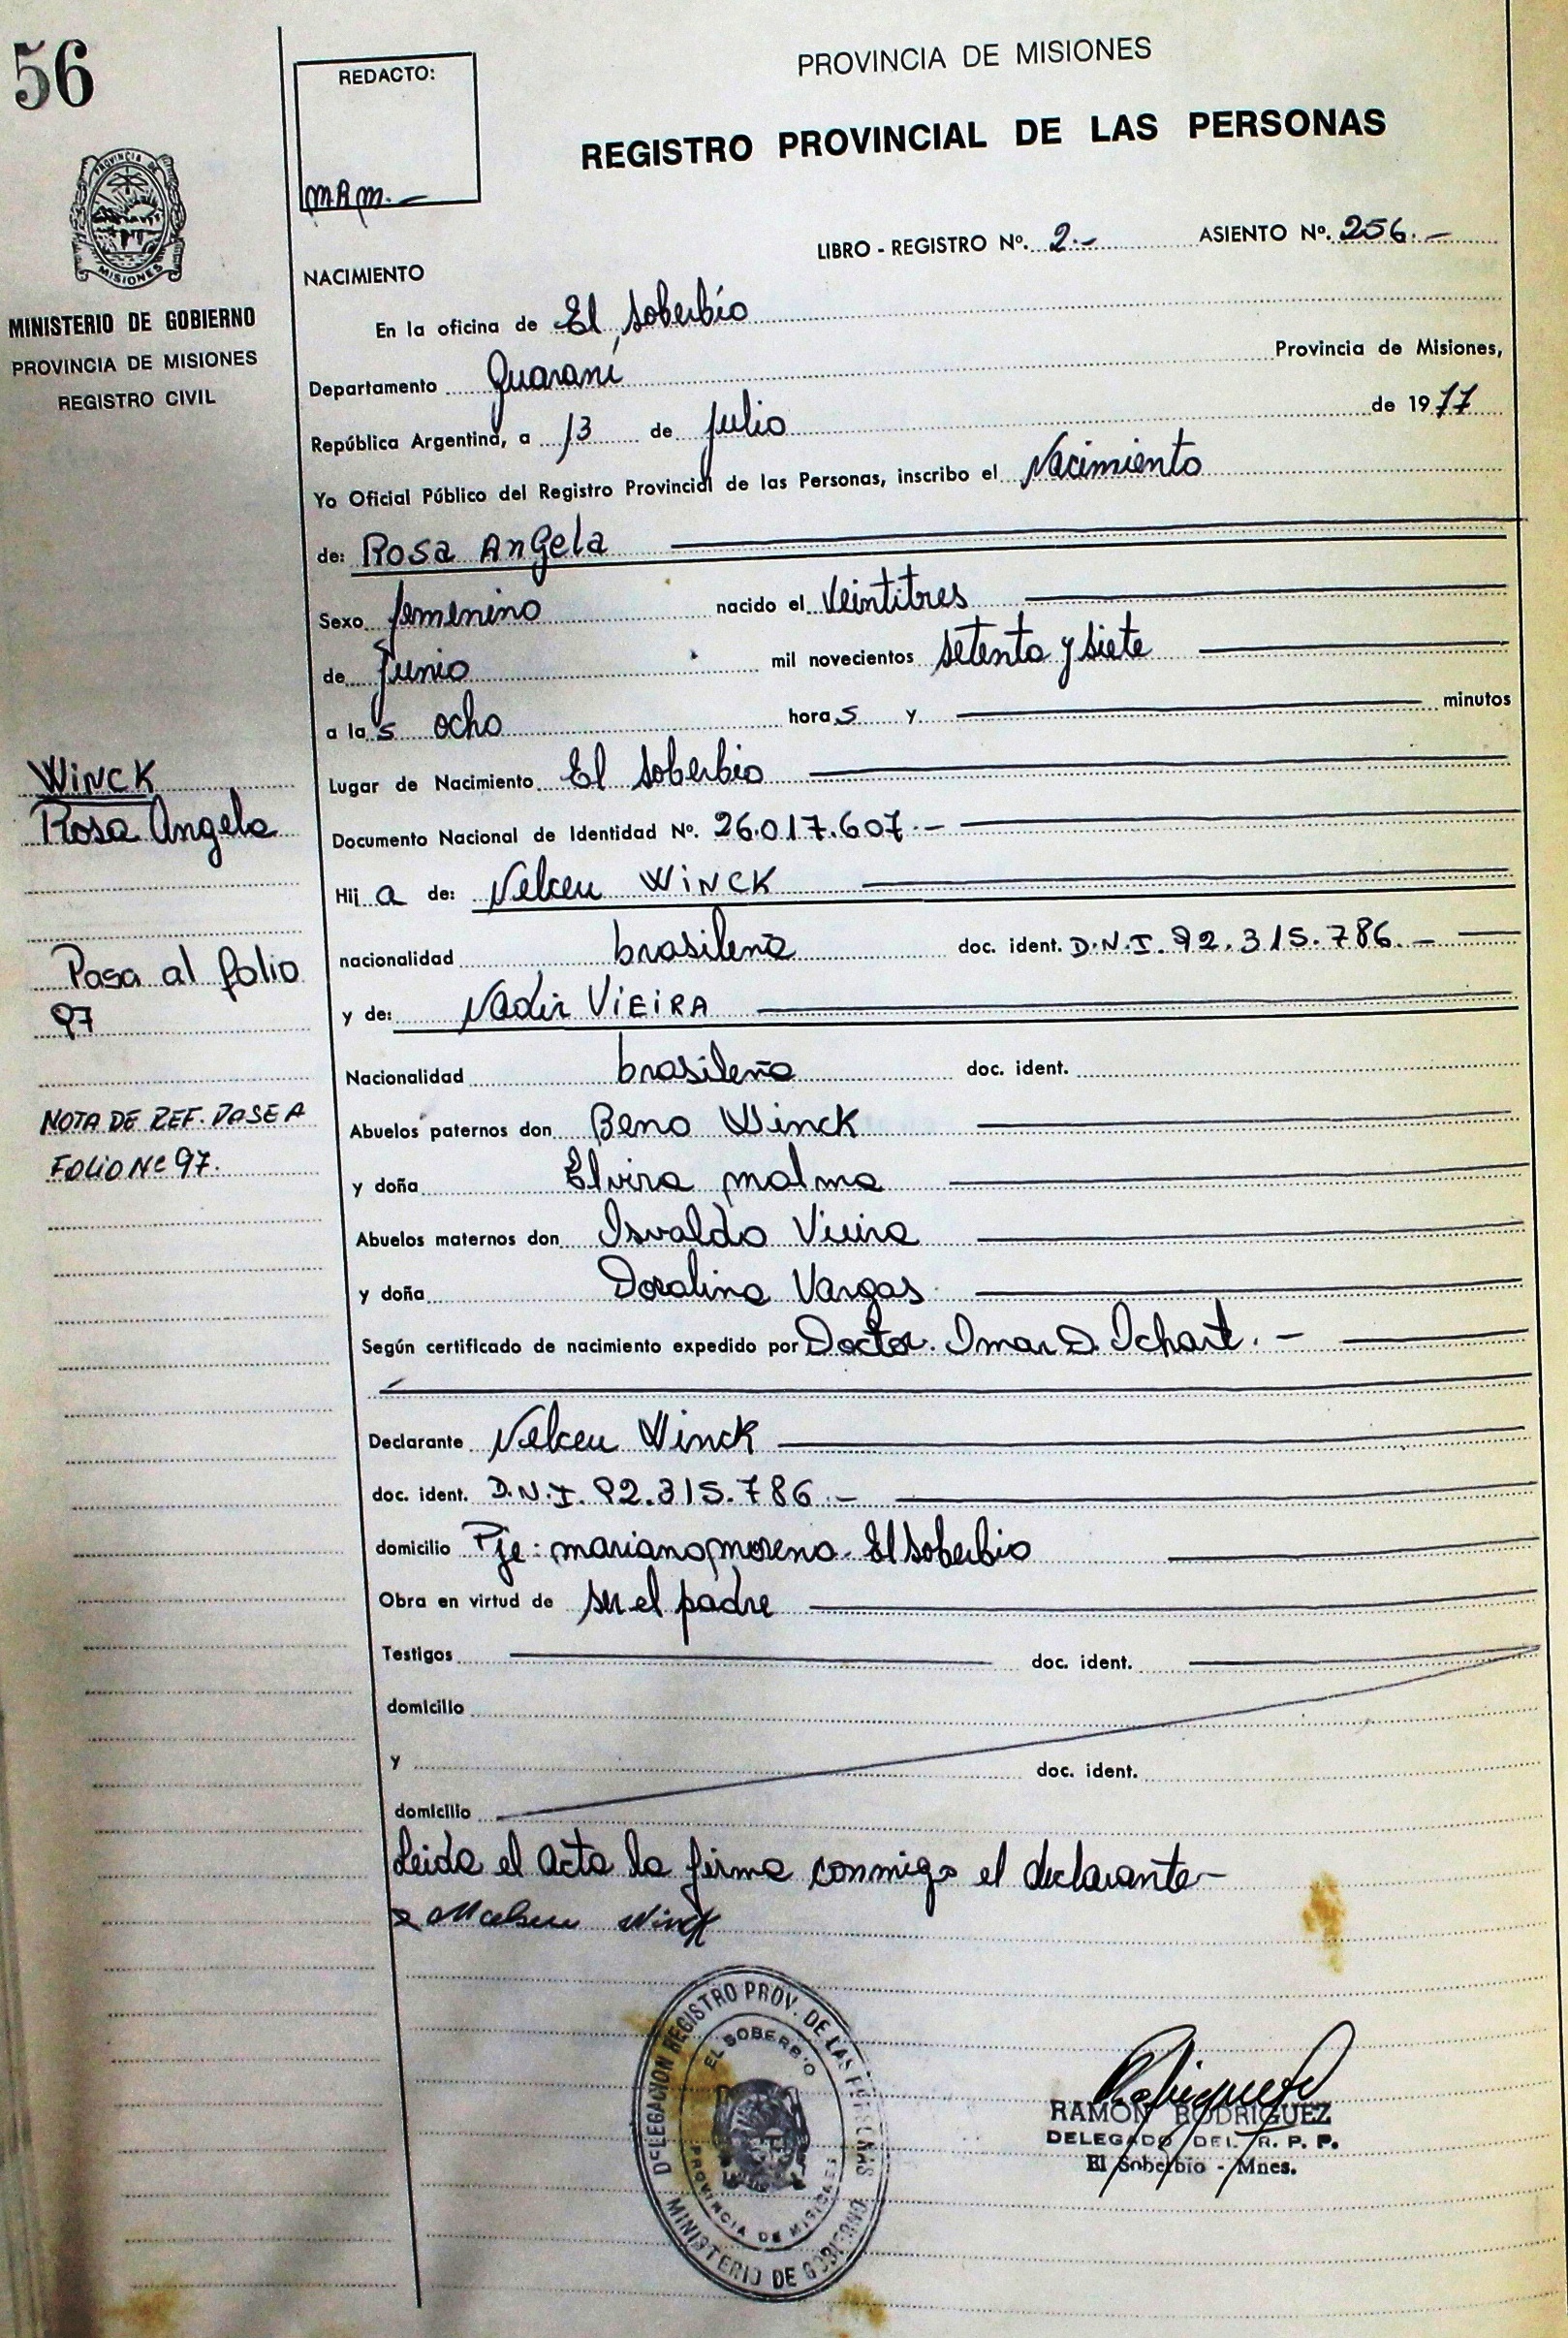 56
REDACTO:
m.A.m.-
PROVINCIA DE MISIONES
REGISTRO PROVINCIAL DE LAS PERSONAS
LIBRO - REGISTRO Nº. 2.- ASIENTO Nº. 256.-
PROVINCIA DE
MISIONES
MINISTERIO DE GOBIERNO
PROVINCIA DE MISIONES
REGISTRO CIVIL
NACIMIENTO
En la oficina de El soberbio
Departamento Guaraní Provincia de Misiones,
República Argentina, a 13 de julio de 1977
Yo Oficial Público del Registro Provincial de las Personas, inscribo el Nacimiento
de: Rosa Angela
Sexo femenino nacido el veintitres
de junio mil novecientos setenta y siete
a las ocho horas y minutos
Lugar de Nacimiento El soberbio
Documento Nacional de Identidad Nº. 26.017.607.-
Hija de: Nelceu WINCK
nacionalidad brasileña doc. ident. D.N.I. 92.315.786.-
y de: Nadir VIEIRA
Nacionalidad brasileña doc. ident.
Abuelos paternos don Beno Winck
y doña Elvira malma
Abuelos maternos don Isvaldo Vieira
y doña Doralina Vargas
Según certificado de nacimiento expedido por Doctor. Imar D. Ichart.-
Declarante Nelceu Winck
doc. ident. D.N.I. 92.315.786.-
domicilio Pje: mariano moreno. El Soberbio
Obra en virtud de ser el padre
Testigos doc. ident.
domicilio
y doc. ident.
domicilio
Leida el acta la firma conmigo el declarante-
Winck
WINCK
Rosa Angela
Pasa al folio
97
NOTA DE REF. PASE A
FOLIO Nº 97.
DELEGACION REGISTRO PROV. DE LAS PERSONAS
EL SOBERBIO
PROVINCIA DE MISIONES
MINISTERIO DE GOBIERNO
RAMON RODRIGUEZ
DELEGADO DEL R. P. P.
El Soberbio - Mnes.